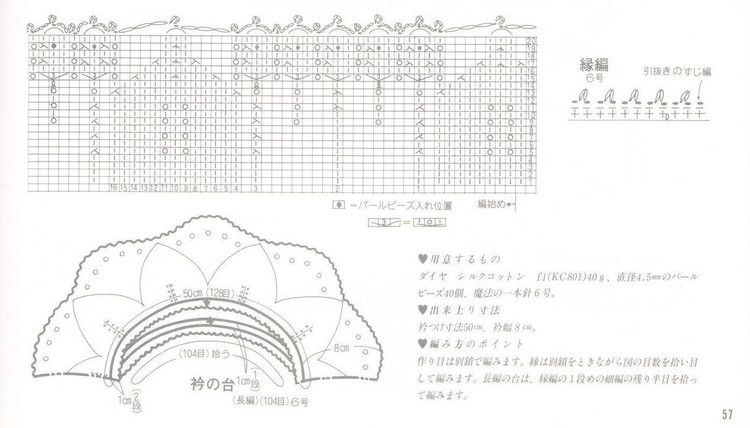 縁編
6号
引抜きのすじ編
20
19
18
17
16
15
14
13
12
11
10
9
8
7
6
5
4
3
2
1
16 15 14 13 12 11 10 9 8 7 6 5 4 3 2 1
=パールビーズ入れ位置
編始め
50cm(128目)
8cm
(104目)拾う
衿の台
1cm(1段)
1cm(2段)
(長編)(104目)6号
♥用意するもの
ダイヤ シルクコットン 白(KC801)40g、直径4.5㎜のパール
ビーズ40個、魔法の一本針6号。
♥出来上り寸法
衿つけ寸法50cm、衿幅8cm。
♥編み方のポイント
作り目は別鎖で編みます。縁は別鎖をときながら図の目数を拾い目
して編みます。長編の台は、縁編の1段めの細編の残り半目を拾っ
て編みます。
57